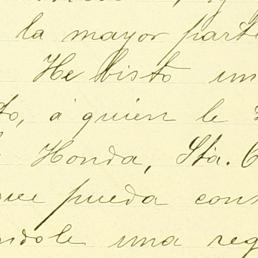 la mayor parte
He bisto un
to, á quien le
Honda, Sta. C
que pueda cons
ndole una reg